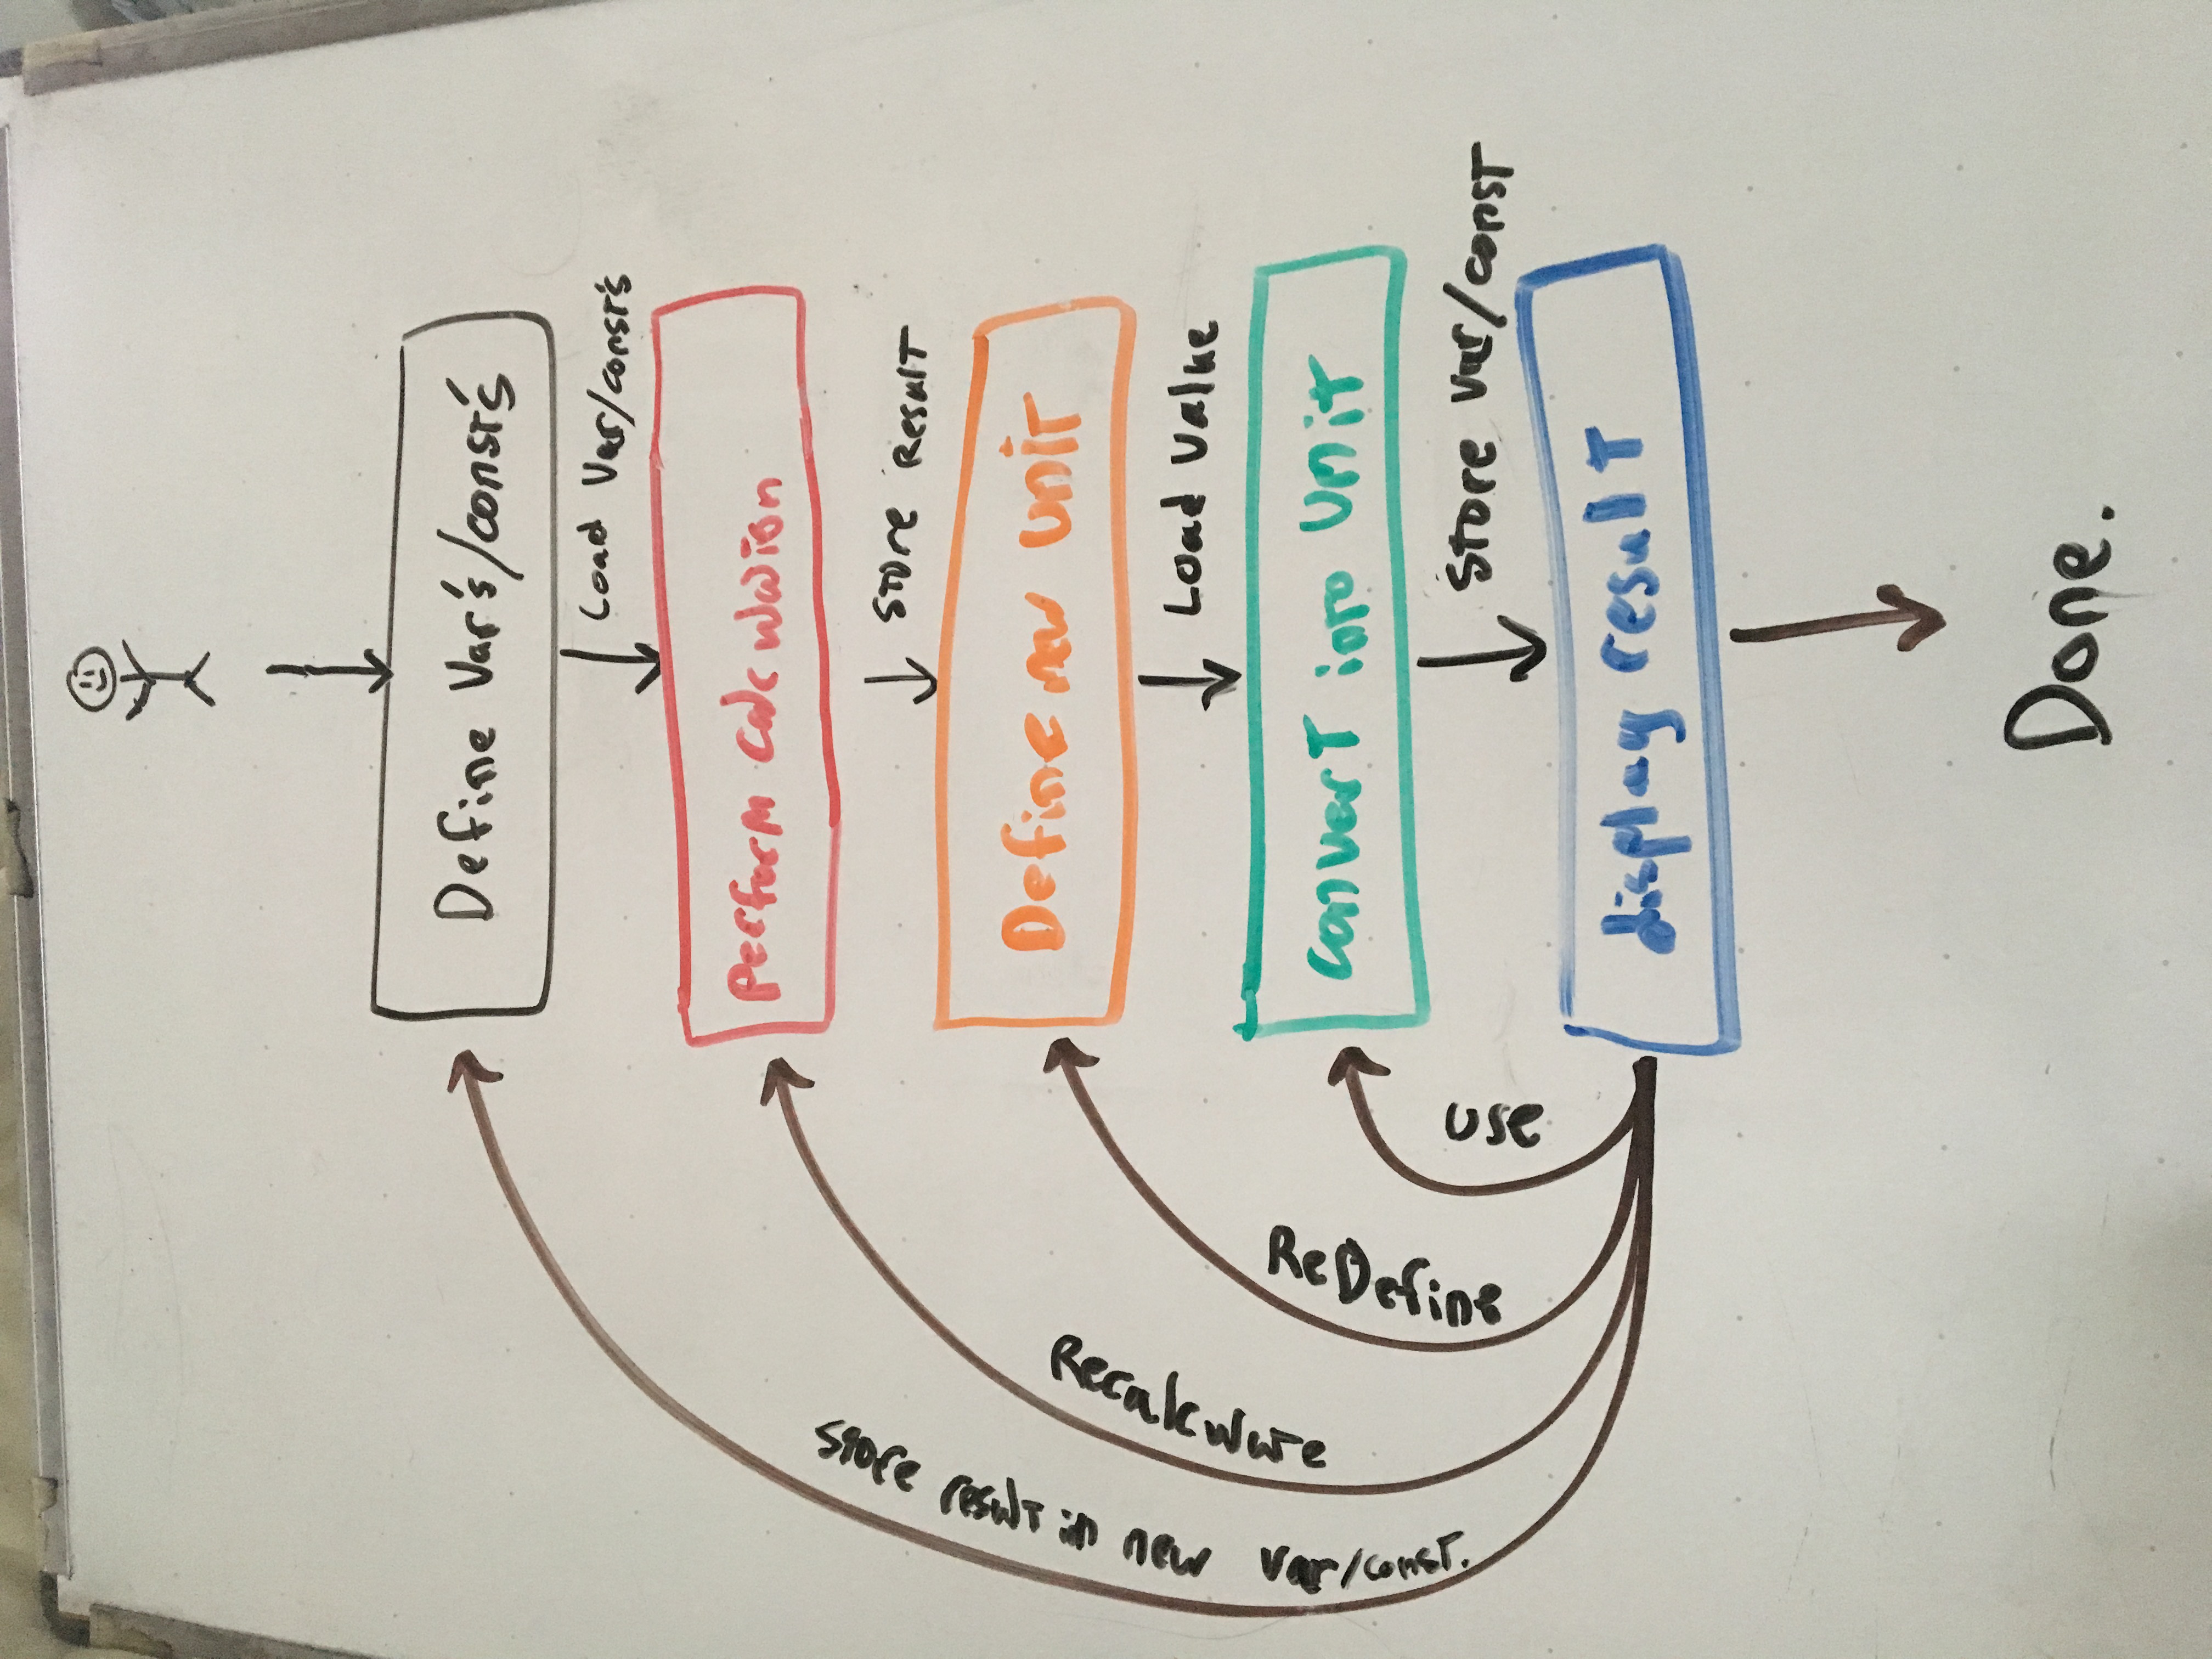 Define Var's/const's
Load Var/const's
Perform Calculation
Store Result
Define new Unit
Load Value
Convert into Unit
Store Var/const
display result
Store result in new Var/const.
Recalculate
ReDefine
Use
Done.